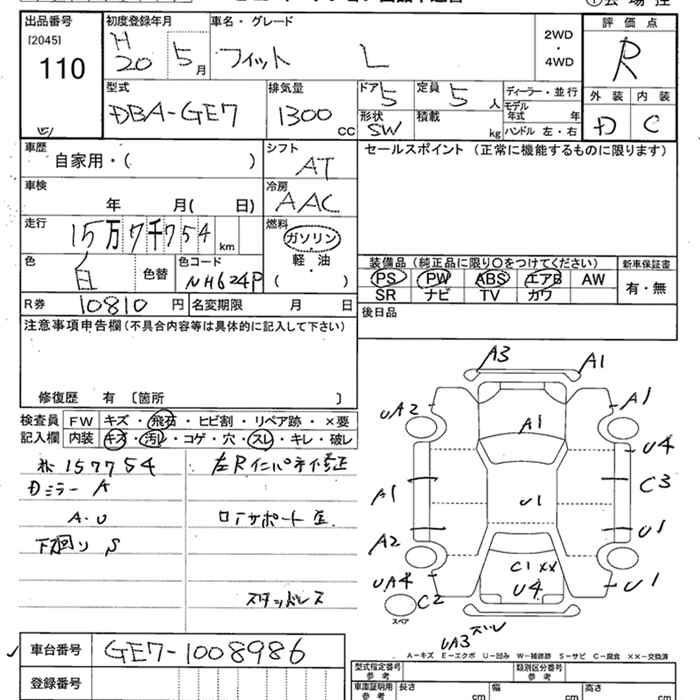 出品番号 [2045] 110
初度登録年月 H 20 5月
車名・グレード フィット L
2WD・4WD
評価点 R
外装 内装
D C
型式 DBA-GE7
排気量 1300 CC
ドア 5
定員 5 人
形状 SW
積載 kg
ディーラー・並行
モデル年式 年
ハンドル 左・右
車歴 自家用・( )
シフト AT
セールスポイント (正常に機能するものに限ります)
車検 年 月( 日)
冷房 AAC
走行 15万7千754 km
燃料 ガソリン
軽・油
( )
色 白 色替
色コード NH624P
装備品 (純正品に限り○をつけてください)
新車保証書
PS PW ABS エアB AW
有・無
SR ナビ TV カワ
R券 10810 円 名変期限 月 日
後日品
注意事項申告欄 (不具合内容等は具体的に記入して下さい)
修復歴 有 〔箇所 〕
検査員記入欄
FW キズ・飛石・ヒビ割・リペア跡・×要
内装 キズ・汚れ・コゲ・穴・スレ・キレ・破レ
157754
Dミラー A
A・U
下回り S
左Rインパネ修正
ロアサポート
スタッドレス
A3 A1
UA2 A1 A1
U4
A1 U1 C3
A2 U1
C1 XX
UA4 U4 U1
C2
スペア
UA3 スレ
車台番号 GE7-1008986
登録番号
A-キズ E-エクボ U-凹み W-補修跡 S-サビ C-腐食 ××-交換済
型式指定番号 参考
類別区分番号 参考
車庫証明用 参考 長さ cm 幅 cm 高さ cm